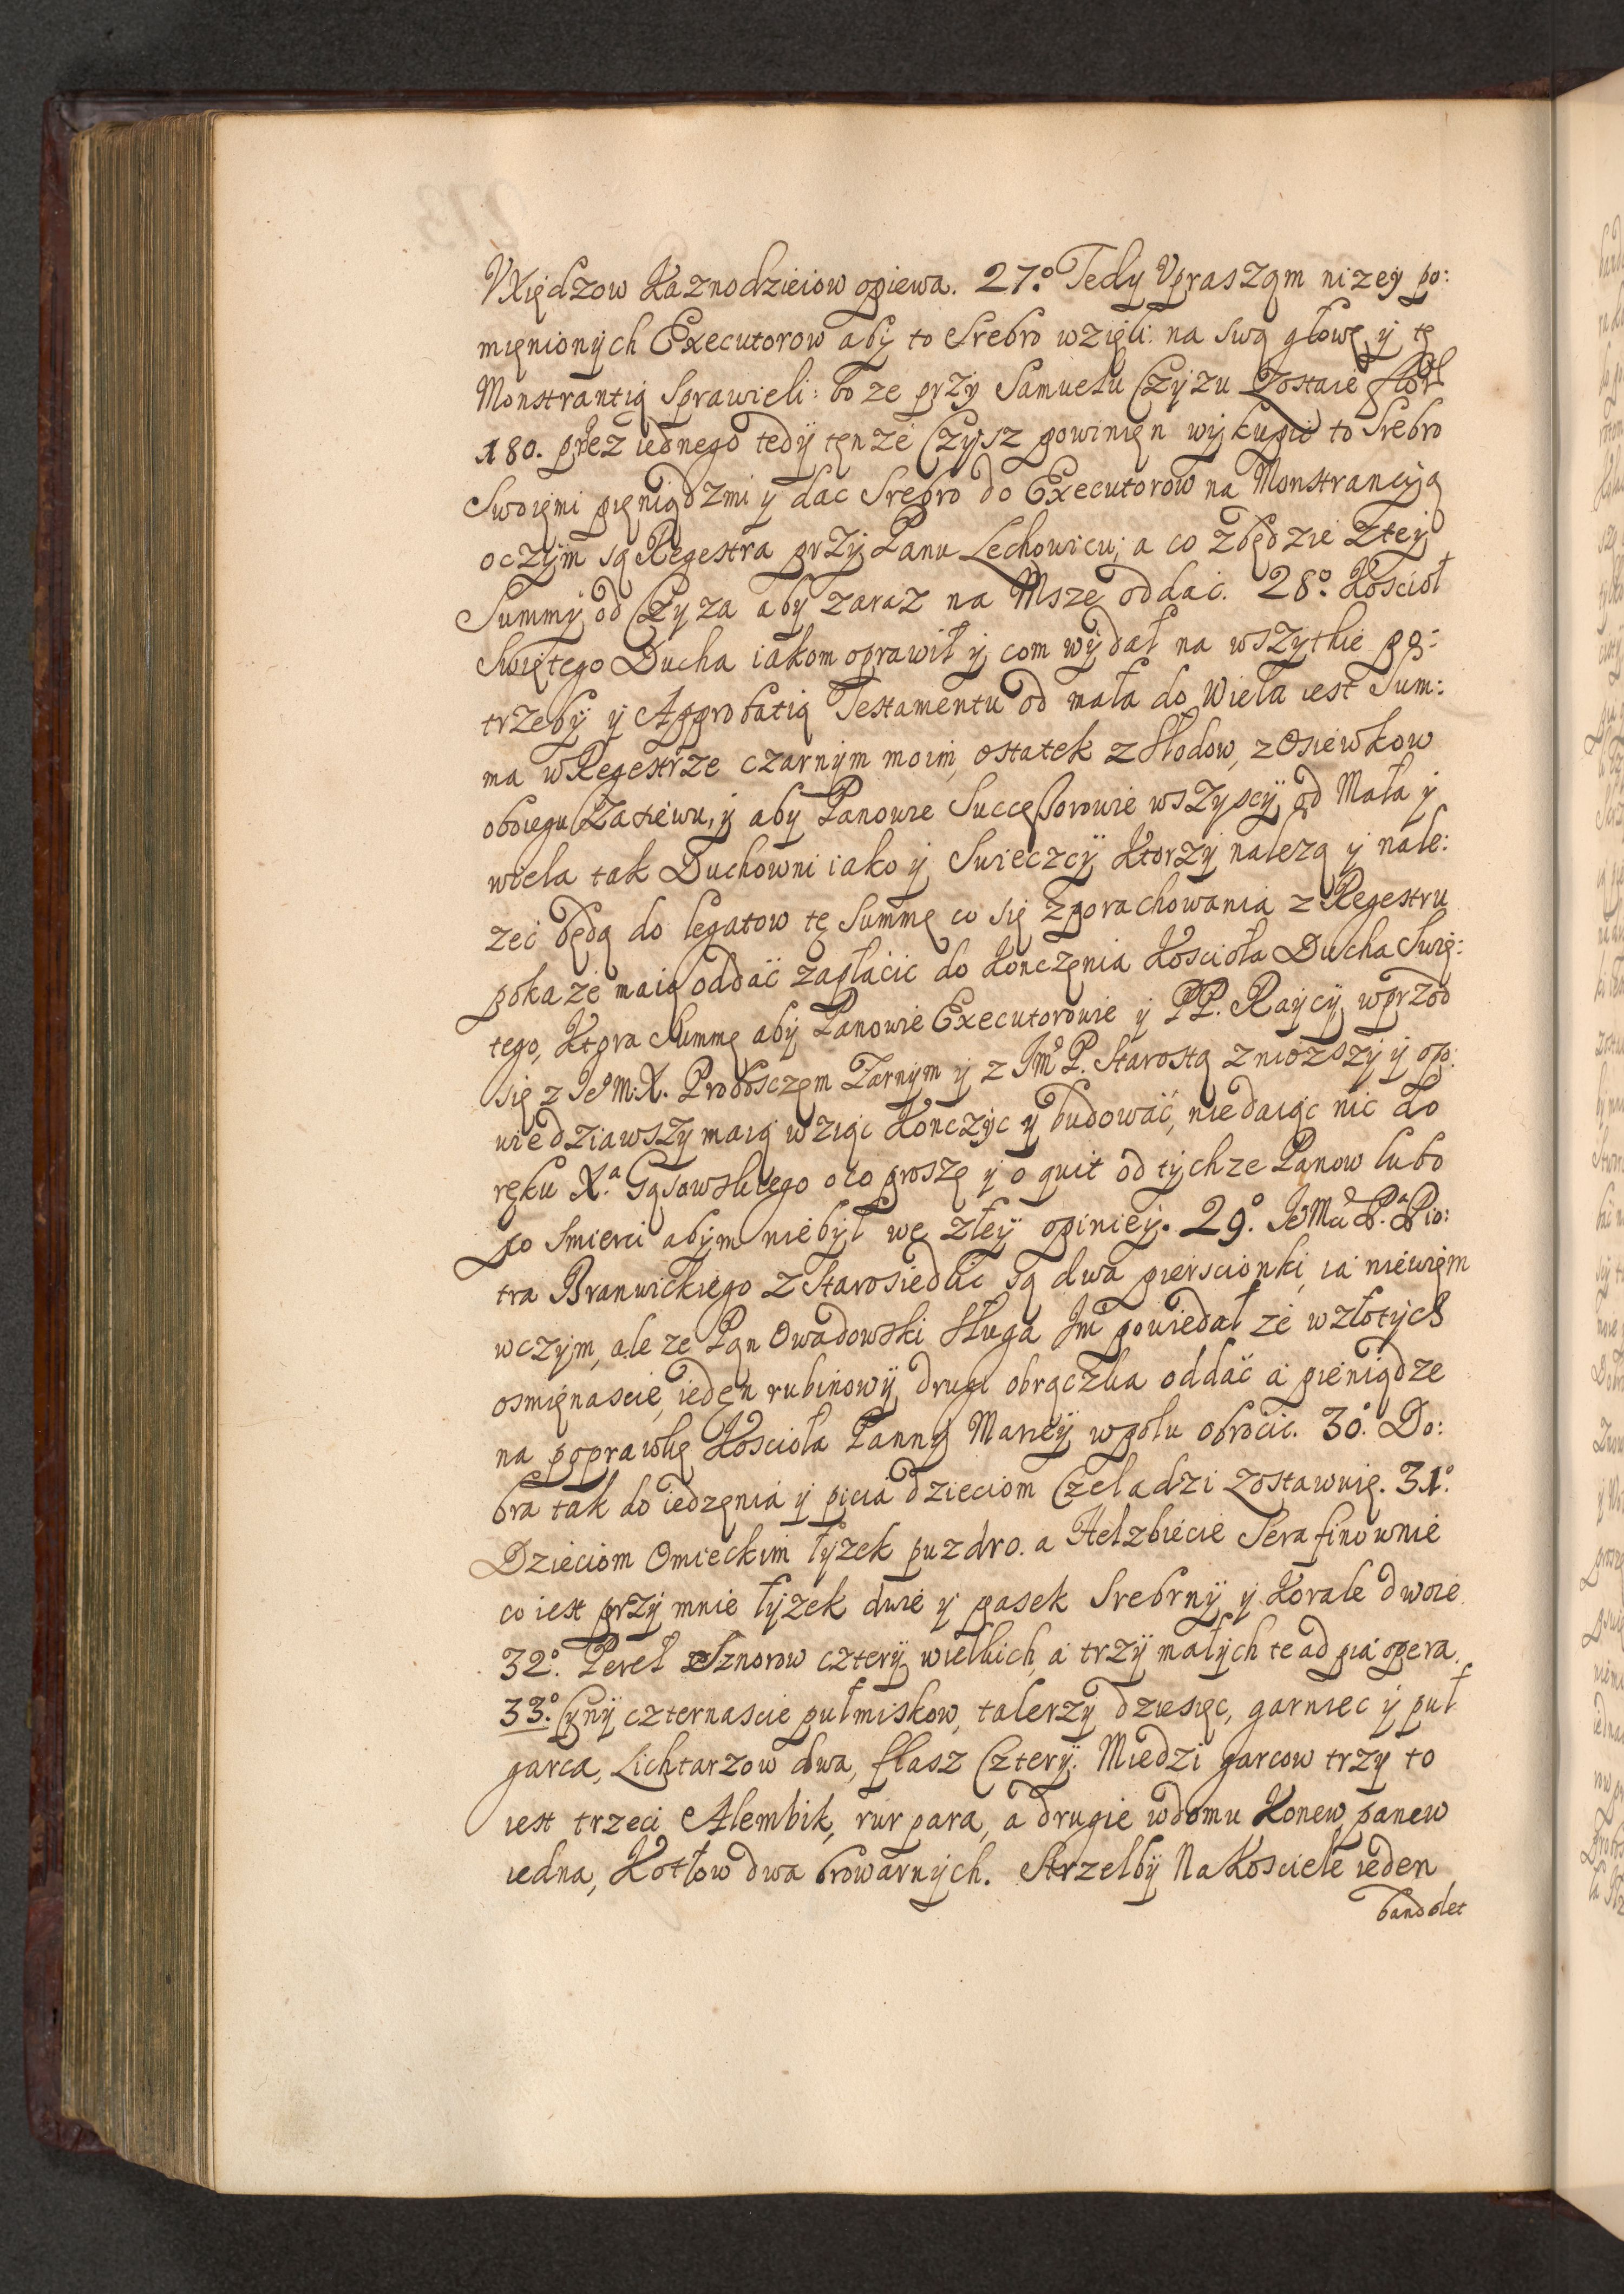 VXiędzow Kaznodzieiow opiewa. 27.° Tedy Vpraszam nizey po:
mięnionych Executorow aby to Srebro wzięli: na swą głowę y tę
Monstrantią Sprawieli: bo ze przy Samuelu Czyzu Zostaie
180. przez iednego tedy tęnze Czysz powinięn wykupic to Srebro
Swoięmi pięniądzmi y dac Srebro do Executorow na Monstrancyą
oczym są Regestra przy Panu Lechowicu; a co zbędzie Ztey
Summy od Czyza aby zaraz na Mszę oddać. 28.° Kosciół
Swiętego Ducha iakom oprawił y com wydał na wszytkie po:
trzeby y Approbatią Testamentu od mała do Wiela iest Sum:
ma w Regestrze czarnym moim, ostatek z Słodow, z Osiewkow
oboiegu Zasiewu, y aby Panowie Successorowie wszyscy od Mała y
wiela tak Duchowni iako y Swieczcy Ktorzy nalezą y nale:
zeć będą do legatow tę Summę co się zporachowania z Regestru
pokaze maią oddać zapłacic do Konczęnia Kościoła Ducha Swię:
tego, Ktora Summę aby Panowie Executorowie y PP. Raycy wprzod
się z Je° M: X. Proboszczęm Farnym y z Jm° P. Starostą zniozszy y opo:
wiedziawszy maią wziąc Konczyc y budować, niedaiąc nic do
ręku X.a Gąsowskiego oco proszę y o quit od tychze Panow lubo
po Smierci abym niebył wę złey opiniey. 29.° Je° Mci P.a Pio:
tra Branwickiego z Starosiedlic są dwa pierscionki, ia niewięm
wczym, ale ze Pan Owadowski Sługa Jm° powiedał ze wzłotych
osmięnascie, iedęn rubinowy drugi obrączka oddać a pieniądze
na poprawkę Kościoła Panny Mariey wpolu obrocic. 30.° Do:
bra tak do iedzęnia y picia dzieciom Czeladzi zostawuię. 31.°
Dzieciom Omieckim łyzek puzdro. a Helzbiecie Serafinownie
co iest przy mnie łyzek dwie y pasek Srebrny y Korale dwoie.
32.° Pereł Sznorow cztery wielkich, a trzy małych te ad pia opera.
33.° Cyny czternascie pułmiskow, talerzy dziesięc, garniec y puł
garca, Lichtarzow dwa, flasz Cztery. Miedzi garcow trzy to
iest trzeci Alembik, rur para, a drugie wdomu Konew, panew
iedna, Kotłow dwa browarnych. Strzelby Na Kosciele ieden
bandolet